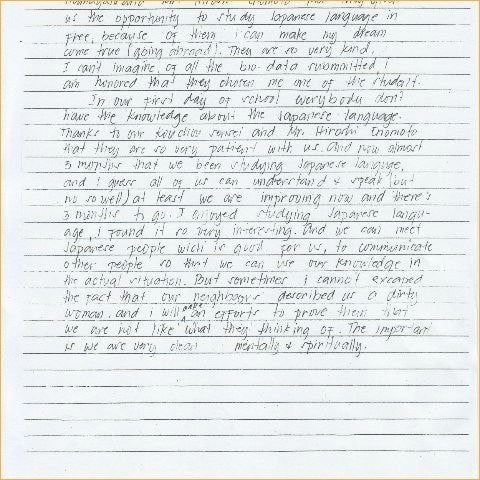 us the opportunity to study Japanese language in
free, because of them i can make my dream
come true (going abroad). They are so very kind.
I can't imagine, of all the bio-data submmitted i
am honored that they chosen me one of the student.
In our first day of school everybody don't
have the knowledge about the Japanese language.
Thanks to our Kouchoo sensei and Mr. Hiroshi Enomoto
that they are so very patient with us. And now almost
3 months that we been studying Japanese languge,
and i guess all of us can understand & speak (but
no so well) at least we are improving now and there's
3 months to go. I enjoyed studying Japanese langu-
age, i found it so very interesting. And we can meet
Japanese people wich is good for us, to communicate
other people so that we can use our knowledge in
the actual situation. But sometimes i cannot excaped
the fact that our neighboors described us a dirty
woman. and i will make an efforts to prove them that
we are not like what they thinking of. The important
is we are very clean mentally & spiritually.